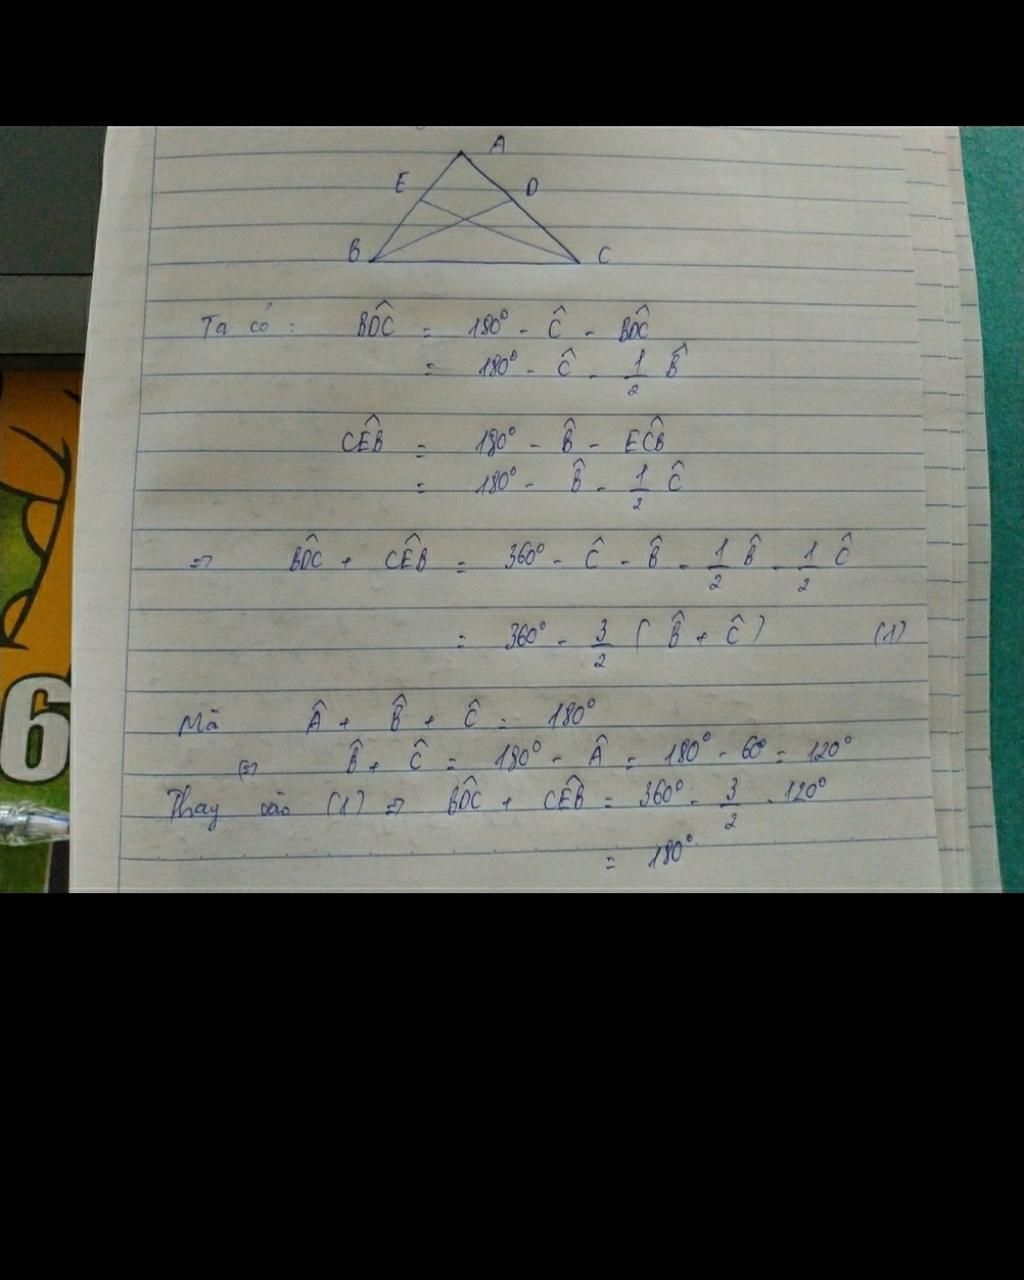 A
E D
B C
Ta có : BD̂C = 180° - Ĉ - BD̂C
= 180° - Ĉ - 1/2 B̂
CÊB = 180° - B̂ - EĈB
= 180° - B̂ - 1/2 Ĉ
=> BD̂C + CÊB = 360° - Ĉ - B̂ - 1/2 B̂ - 1/2 Ĉ
= 360° - 3/2 ( B̂ + Ĉ ) (1)
Mà Â + B̂ + Ĉ = 180°
(=) B̂ + Ĉ = 180° - Â = 180° - 60° = 120°
Thay vào (1) => BD̂C + CÊB = 360° - 3/2 . 120°
= 180°
6